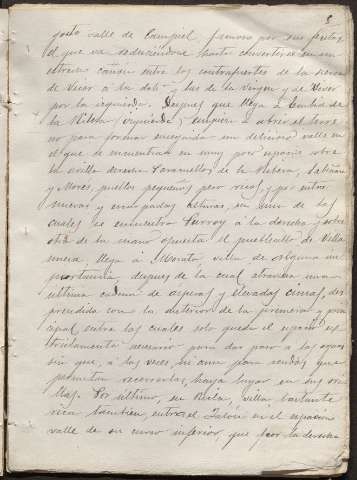 8
gosto valle de Campiel, famoso por sus frutas,
el que va reduciéndose hasta convertirse en un
estrecho cañón entre los contrafuertes de la sierra
de Vicor á la dcha y las de la Virgen y de
por la izquierda. Después que llega á Embid de
la Ribera (izquierda) empieza á abrir el terre
no para formar enseguida un delicioso valle en
el que se encuentran en muy poco espacio sobre
la orilla derecha Paracuellos de la Ribera, Sabiñan
y Morés, pueblos pequeños pero ricos, y por entre
nuevas y escarpadas alturas, en una de las
cuales se encuentra Purroy á la derecha y sobre
otra de la mano opuesta el pueblecillo de Villa
nueva, llega á Morata, villa de alguna im
portancia, después de la cual atraviesa una
última cadena de ásperas y elevadas cimas, des
prendida con la anterior de la general y prin
cipal, entre las cuales solo queda el espacio es
trictamente necesario para dar paso á las aguas
sin que, á las veces, ni aun para sendas que
permitan recorrerlas, haya lugar en sus ori
llas. Por último, en Ricla, villa bastante
rica también, entra el Jalón en el espacioso
valle de su curso inferior, que por la derecha